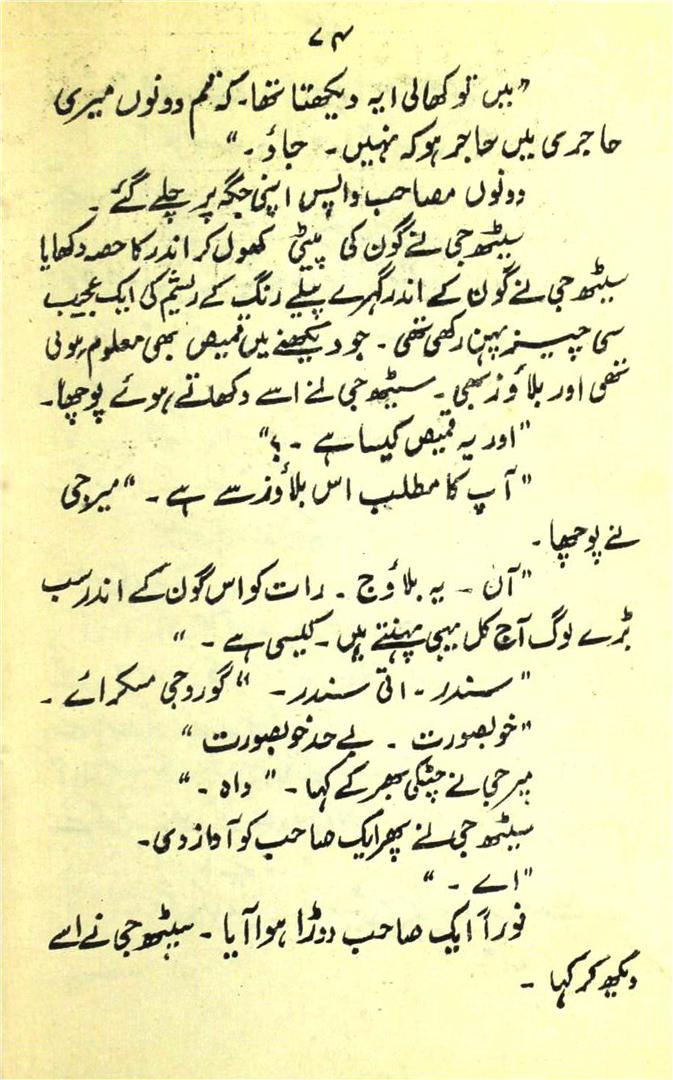 ۷۴
”میں تو کھالی ایہ دیکھتا تھا۔ کہ تم دونوں میری
حاجری میں حاجر ہو کہ نہیں۔ جاؤ۔“
دونوں مصاحب واپس اپنی جگہ پر چلے گئے۔
سیٹھ جی نے گون کی پیٹی کھول کر اندر کا حصہ دکھایا
سیٹھ جی نے گون کے اندر گہرے پیلے رنگ کے ریشم کی ایک عجیب
سی چیز پہن رکھی تھی۔ جو دیکھنے میں قمیص بھی معلوم ہوتی
تھی اور بلاؤز بھی۔ سیٹھ جی نے اسے دکھاتے ہوئے پوچھا۔
”اور یہ قمیص کیسا ہے۔؟“
”آپ کا مطلب اس بلاؤز سے ہے۔“ میر جی
نے پوچھا۔
”آن۔ یہ بلاؤج۔ رات کو اس گون کے اندر سب
بڑے لوگ آج کل یہی پہنتے ہیں۔ کیسی ہے۔“
”سندر۔ اتی سندر۔“ گورو جی مسکرائے۔
”خوبصورت۔ بے حد خوبصورت“
میر جی نے چٹکی بھر کے کہا۔ ”واہ۔“
سیٹھ جی نے پھر ایک صاحب کو آواز دی۔
”اے۔“
فوراً ایک صاحب دوڑا ہوا آیا۔ سیٹھ جی نے اسے
دیکھ کر کہا۔